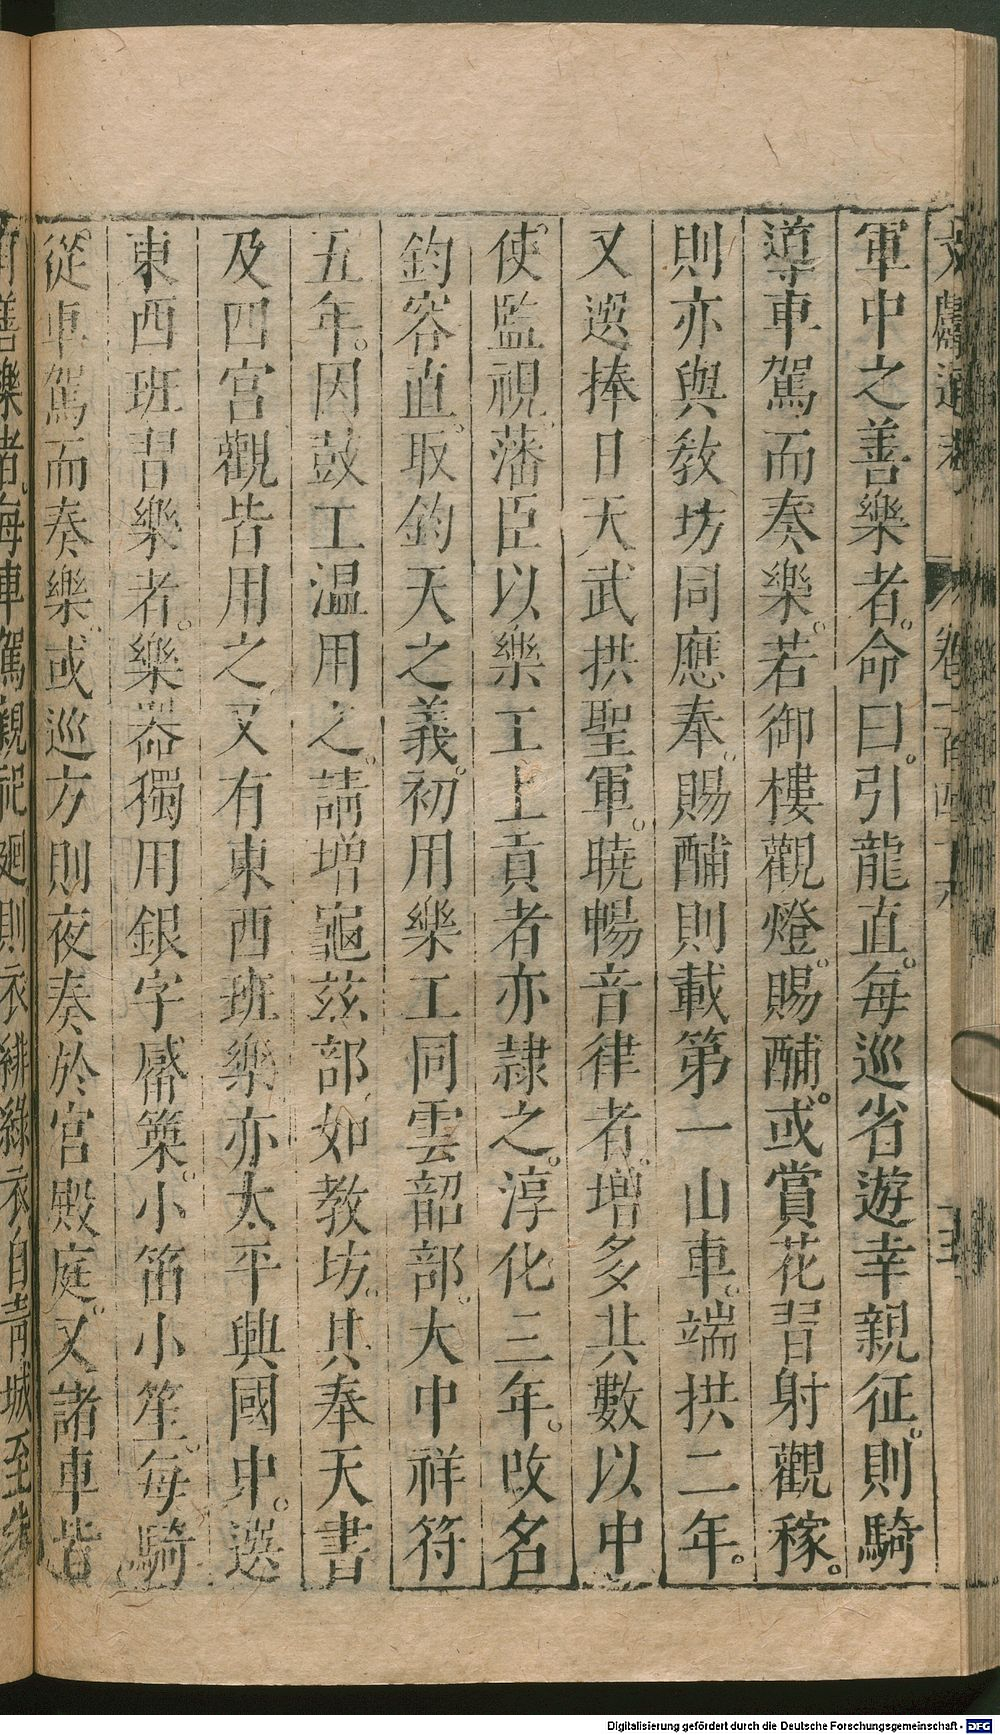 文獻通考 卷一百四十六
軍中之善樂者。命曰。引龍直。每巡省遊幸親征。則騎
導車駕而奏樂。若御樓觀燈。賜酺。或賞花習射觀稼。
則亦與敎坊同應奉。賜酺則載第一山車。端拱二年。
又選捧日天武拱聖軍。曉暢音律者。增多其數以中
使監視。藩臣以樂工上貢者亦隷之。淳化三年。改名
鈞容直。取鈞天之義。初用樂工同雲韶部。大中祥符
五年。因鼓工温用之。請增龜茲部如教坊。其奉天書
及四宮觀皆用之又有東西班樂亦太平興國中。選
東西班習樂者。樂器獨用銀字觱篥。小笛小笙。每騎
從車駕而奏樂。或巡方則夜奏於宮殿庭。又諸軍皆
有善樂者。每車駕親祀廻則衣緋綠衣自青城至
Digitalisierung gefördert durch die Deutsche Forschungsgemeinschaft - DFG